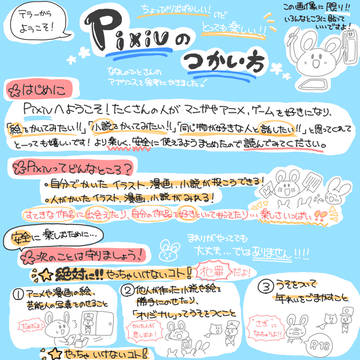 テラーから
ようこそ！
ちょっぴりむずかしい！けど
とっても楽しい！！
この画像に限り!!
いろんなところに貼って
いいですよ!
Pixivの
つかい方
はじめに
Pixivへようこそ！たくさんの人がマンガやアニメ、ゲームを好きになり、
「絵をかいてみたい!!」「小説をかいてみたい!!」「同じ物が好きな人と話したい!!」と思ってくれて
とっても嬉しいです！より楽しく、安全に使えるようまとめたので読んでみてください。
Pixivってどんなところ？
自分でかいたイラスト、漫画、小説が投こうできる！
人がかいたイラスト、漫画、小説がみれる！
すてきな作品に出会えたり、自分の作品を好きといってもらえたり…楽しさいっぱい。
安全に楽しむために…
次のことは守りましょう！
まわりがやってても
大丈夫ではありません!!!
絶対に!!やっちゃいけないコト！
犯罪だよ！
①アニメや漫画の絵、
芸能人の写真をのせること
②他人が作った小説や絵を
勝手にのせたり、
「オリジナル」とうそをつくこと
③うそをついて
年れいをごまかすこと
やっちゃいけないコト！